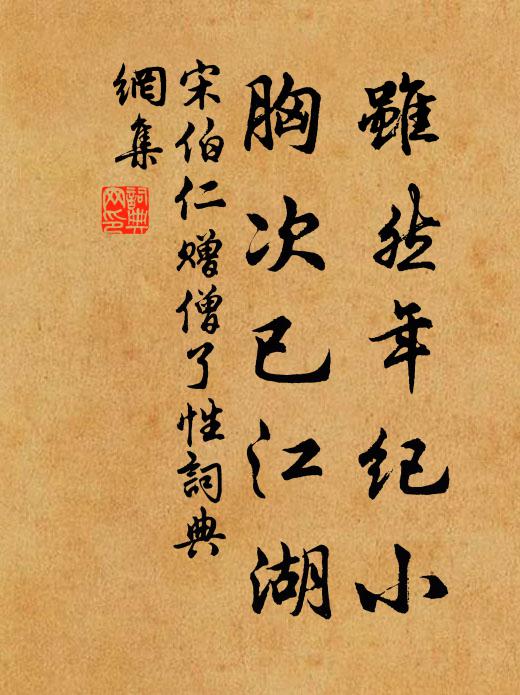 雖然年纪小
胸次已江湖
宋伯仁赠僧了性詞典
網集
詞典
网印